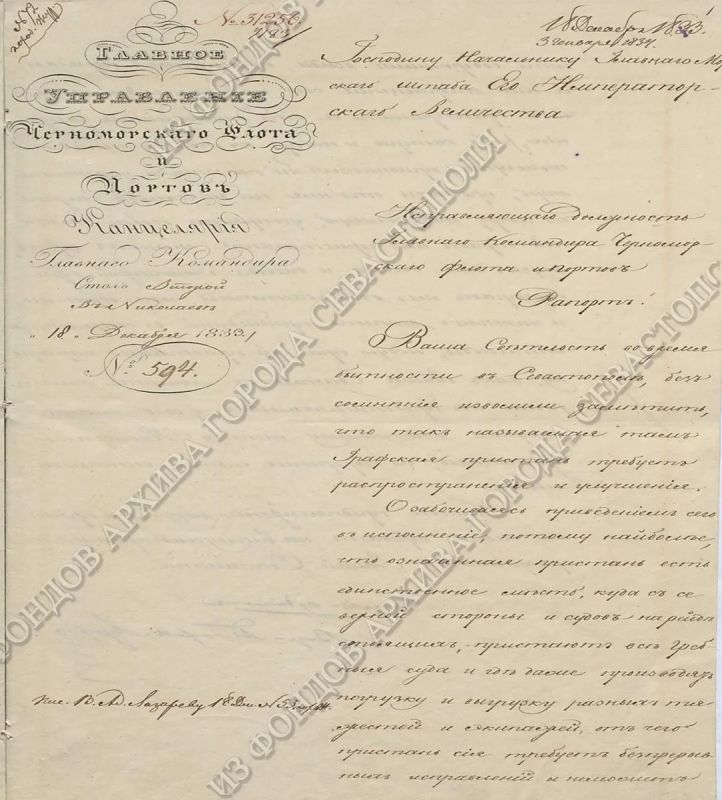 № 31256
18 Декабря 1833.
3 Генваря 1834.
Главное
Управленіе
Черноморскаго Флота
и
Портовъ
Канцелярія
Главнаго Командира
Столъ Второй
Въ Николаевѣ
„18„ Декабря 1833
№ 594.
Господину Начальнику Главнаго Мор-
скаго штаба Его Император-
скаго Величества
Исправляющаго должность
Главнаго Командира Черномор-
скаго флота и портовъ
Рапортъ.
Ваша Свѣтлость во время
бытности въ Севастополѣ, безъ
сомнѣнія изволили замѣтить,
что такъ называемая тамъ
Графская пристань требуетъ
распространенія и улучшенія.
Озабочиваясь приведеніемъ сего
въ исполненіе, потому наиболѣе,
что означенная пристань есть
единственное мѣсто, куда съ сѣ
верной стороны и судовъ на рейдѣ
стоящихъ, пристаютъ всѣ греб
ныя суда и гдѣ даже производятъ
погрузку и выгрузку разныхъ тя
жестей и экипажей, отъ чего
пристань сія требуетъ безпрерыв
ныхъ исправленій и неможетъ
Пис. В. Ад. Лазареву 18
ИЗ ФОНДОВ АРХИВА ГОРОДА СЕВАСТОПОЛЯ
ИЗ ФОНДОВ АРХИВА ГОРОДА СЕВАСТОПОЛЯ